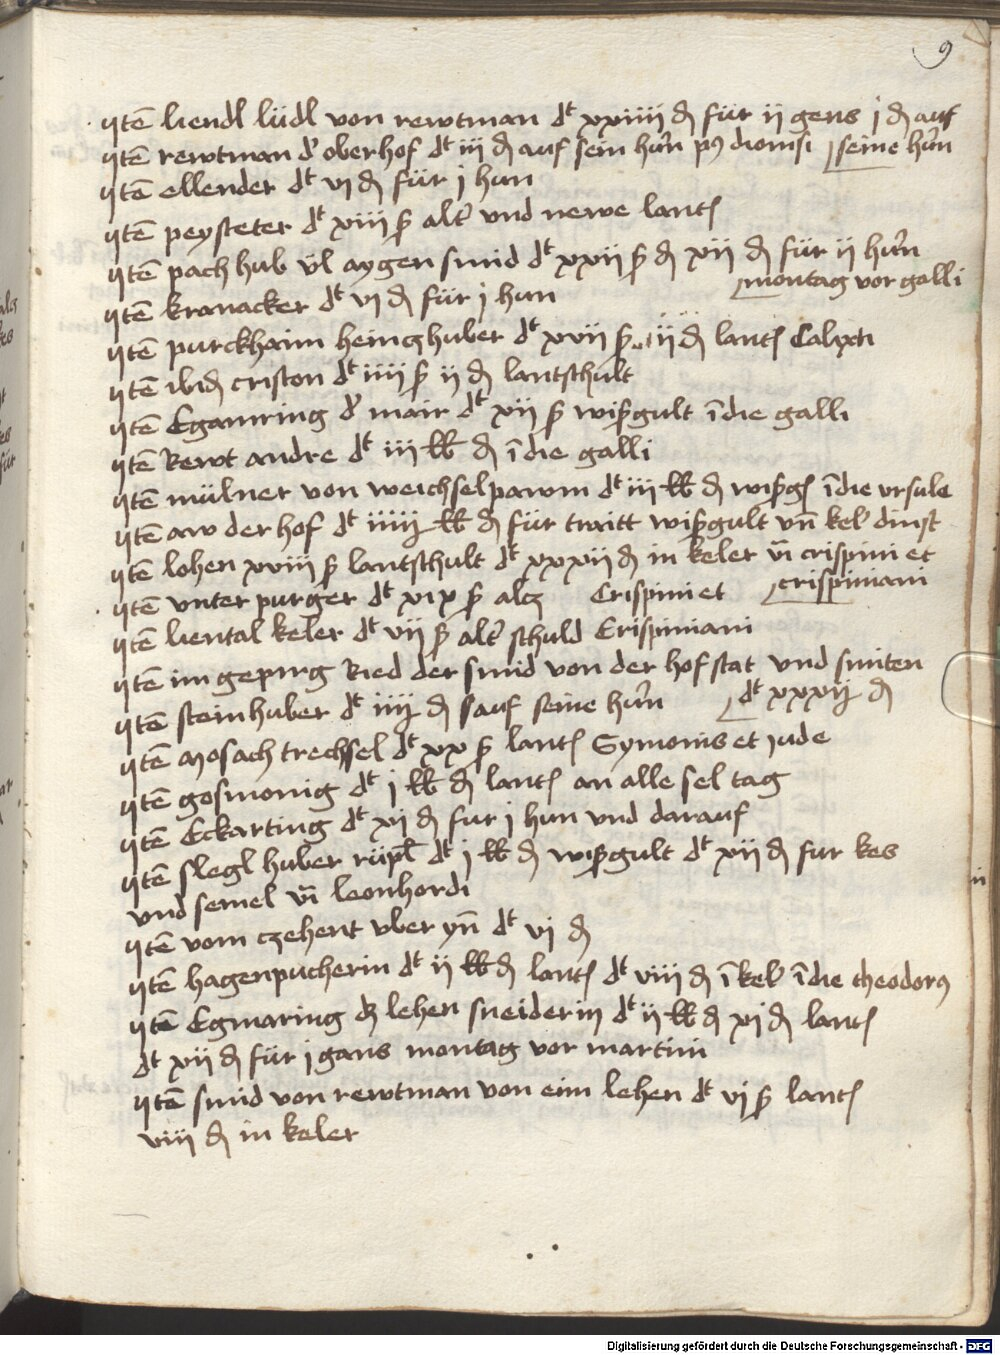 9
Jtē liendl lüdl von rewtman dt xxiiii đ für ii gens j đ auf
Jtē rewtman d' oberhof dt iii đ auf sein hu͂n p9 dionisi seine hu͂n
Jtē ellender dt vi đ für j hun
Jtē peysteter dt xiii ß alt' vnd newe lantß
Jtē pach hub vl aygen smid dt xxii ß đ xii đ für ii hu͂n
Jtē kranacker dt vi đ für j hun montag vor galli
Jtē purckhaim heinczhuber dt xvii ß ii đ lantß Calixti
Jtē ibiđ criston dt iiii ß ii đ lantschult
Jtē Egamring d' mair dt xii ß wißgult ī die galli
Jtē Rewt andre dt iii lb đ ī die galli
Jtē mülner von weichselpawm dt iii lb đ wißgß ī die vrsule
Jtē aw der hof dt iiij lb đ für traitt wißgult vn̄ kel' dinst
Jtē lohen xviii ß lantschult dt xxxii đ in keler vī crispini et
Jtē vnter purger dt xix ß alcz Crispini et crispiniani
Jtē liental keler dt vii ß alt' schuld Crispiniani
Jtē im gepirg Ried der smid von der hofstat vnd smiten
Jtē steinhuber dt iiij đ auf seine hu͂n dt xxxij đ
Jtē Mosach trechsel dt xx ß lantß Symonis et jude
Jtē gosmonig dt j lb đ lantß an alle sel tag
Jtē Eckarting dt xij đ fur j hun vnd darauf
Jtē slegl huber rüpl dt j lb đ wißgult dt xii đ fur kes
vnd semel vī leonhardi
Jtē vom czehent vber yn̄ dt vj đ
Jtē hagenpucherin dt ii lb đ lantß dt viii đ ī kel' ī die theodor9
Jtē Egmaring dz lehen sneiderin dt ii lb đ xj đ lantß
dt xii đ für j gans montag vor martini
Jtē smid von rewtman von eim lehen dt vj ß lantß
viii đ in keler
Digitalisierung gefördert durch die Deutsche Forschungsgemeinschaft - DFG